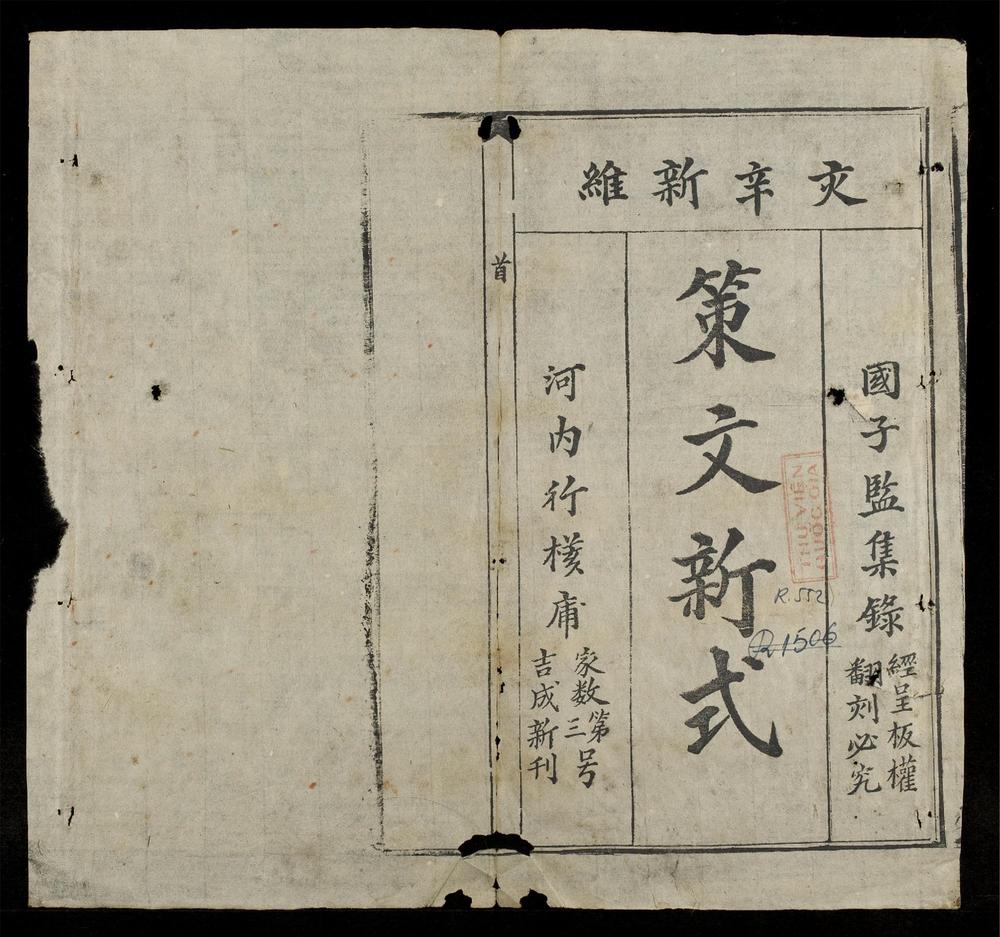 維新辛亥
國子監集錄
經呈板權
翻刻必究
策文新式
河内行庯
家数第三号
吉成新刊
首
THƯ VIỆN
QUỐC GIA
R.552
R1506